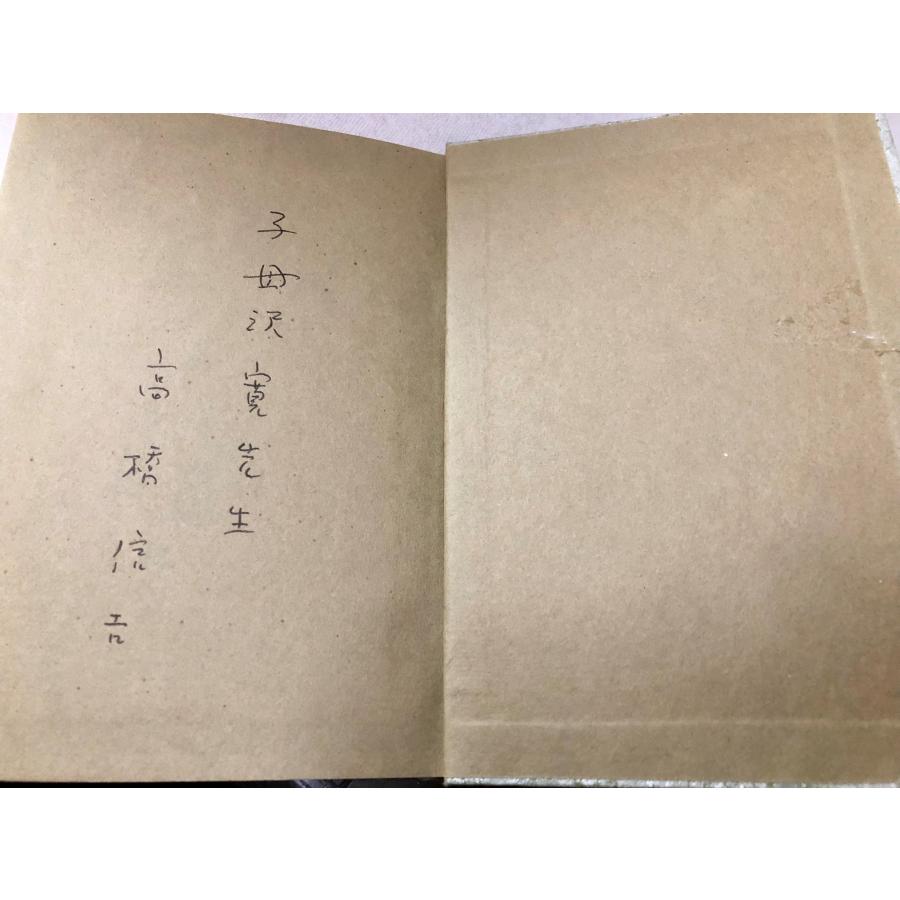 子母沢寛先生
高橋信吉